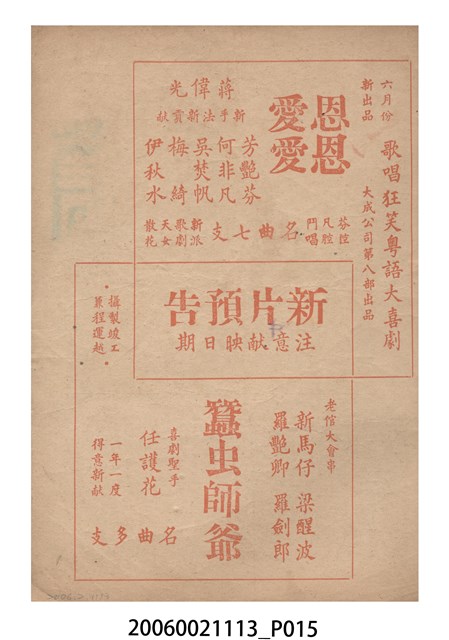 六月份
新出品
歌唱狂笑粵語大喜劇
大成公司第八部出品
恩恩愛愛
蔣偉光
新手法新貢献
芳艷芬
何非凡
吳焚帆
梅綺
伊秋水
芬腔
凡腔
鬥唱
名曲七支
新派
歌劇
天女
散花
新片預告
注意献映日期
攝製竣工
兼程運越
老倌大會串
新馬仔 梁醒波
羅艷卿 羅劍郎
蠶虫師爺
喜劇聖手
任護花
一年一度
得意新献
名曲多支
20060021113_P015